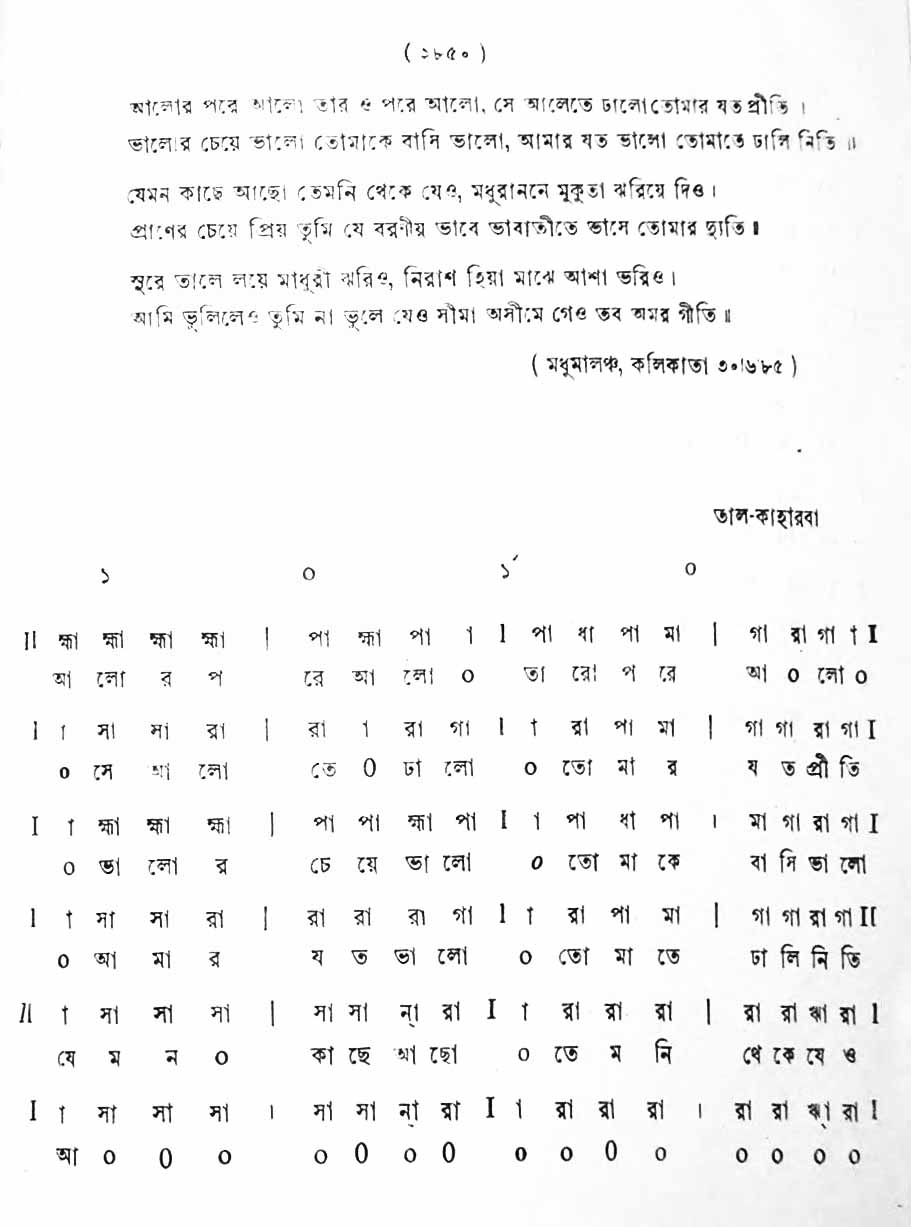 ( ১৮৫০ )
আলোর পরে আলো তার ও পরে আলো, সে আলেতে ঢালো তোমার যত প্রীতি ।
ভালোর চেয়ে ভালো তোমাকে বাসি ভালো, আমার যত ভালো তোমাতে ঢালি নিতি ॥
যেমন কাছে আছো তেমনি থেকে যেও, মধুরাননে মুকুতা ঝরিয়ে দিও ।
প্রাণের চেয়ে প্রিয় তুমি যে বরণীয় ভাবে ভাবাতীতে ভাসে তোমার দ্যুতি ॥
সুরে তালে লয়ে মাধুরী ঝরিও, নিরাশ হিয়া মাঝে আশা ভরিও ।
আমি ভুলিলেও তুমি না ভুলে যেও সীমা অসীমে গেও তব অমর গীতি ॥
( মধুমালঞ্চ, কলিকাতা ৩০।৬৮৫ )
তাল-কাহারবা
১ ০ ১´ ০
II হ্মা হ্মা হ্মা হ্মা | পা হ্মা পা া I পা ধা পা মা | গা রা গা া I
আ লো র প রে আ লো ০ তা রো প রে আ ০ লো ০
I া সা সা রা | রা া রা গা I া রা পা মা | গা গা রা গা I
০ সে আ লো তে ০ ঢা লো ০ তো মা র য ত প্রী তি
I া হ্মা হ্মা হ্মা | পা পা হ্মা পা I া পা ধা পা । মা গা রা গা I
০ ভা লো র চে য়ে ভা লো ০ তো মা কে বা সি ভা লো
I া সা সা রা | রা রা রা গা I া রা পা মা | গা গা রা গা II
০ আ মা র য ত ভা লো ০ তো মা তে ঢা লি নি তি
II া সা সা সা | সা সা ন্া রা I া রা রা রা | রা রা ঋা রা I
যে ম ন ০ কা ছে আ ছো ০ তে ম নি থে কে যে ও
I া সা সা সা । সা সা ন্া রা I া রা রা রা । রা রা ঋা রা I
আ ০ ০ ০ ০ ০ ০ ০ ০ ০ ০ ০ ০ ০ ০ ০